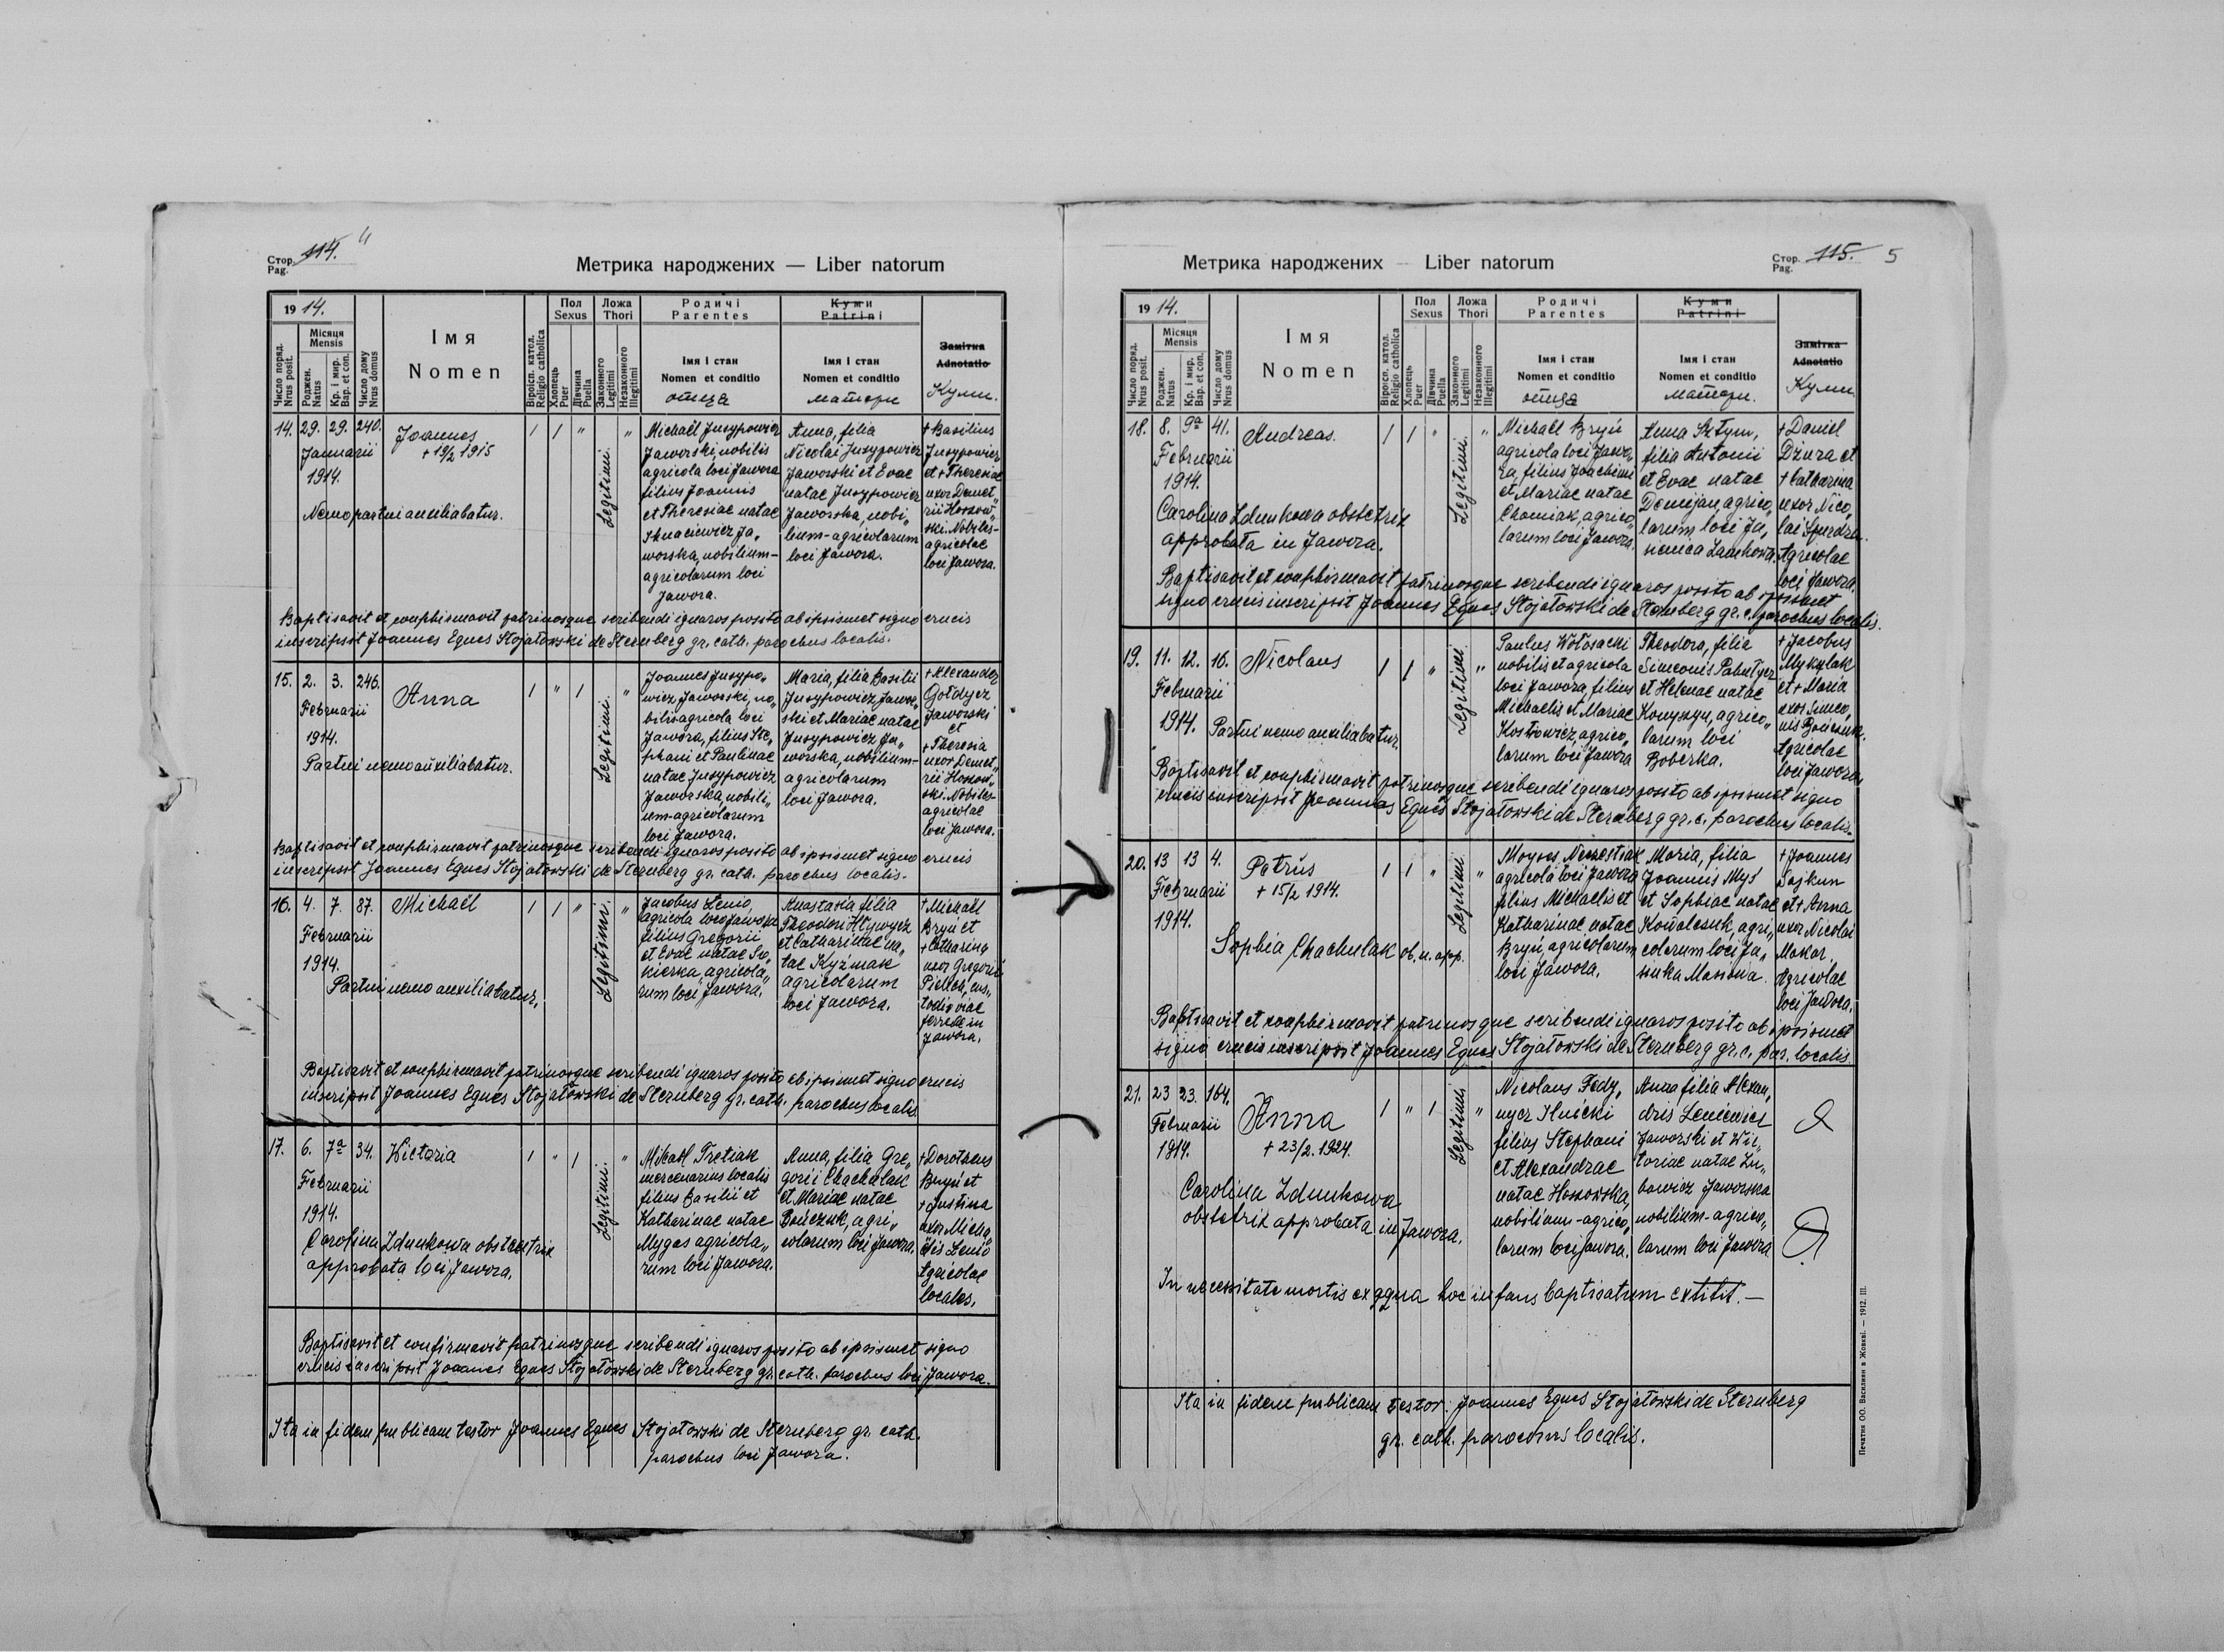 Стор. Pag. 114. 4
Метрика народжених — Liber natorum
19 14.
Число поряд. Nrus posit.
Місяця Mensis
Роджен. Natus
Кр. і мир. Bap. et con.
Число дому Nrus domus
Імя
Nomen
Віроісп. катол. Religio catholica
Пол Sexus
Хлопець Puer
Дівчина Puella
Ложа Thori
Законного Legitimi
Незаконного Illegitimi
Родичі
Parentes
Імя і стан
Nomen et conditio
отца
Куми
Patrini
Імя і стан
Nomen et conditio
матери
Замітка
Adnotatio
Куми.
14. 29. 29. 240.
Januarii
1914.
Joannes
+ 19/2 1915
1 1 " Legitimi. "
Nemo partui auxiliabatur.
Michaël Jusypowicz
Jaworski, nobilis
agricola loci Jawora
filius Joannis
et Theresiae natae
Ihnaciewicz Ja„
worska, nobilium-
agricolarum loci
Jawora.
Anna, filia
Nicolai Jusypowicz
Jaworski et Evae
natae Jusypowicz
Jaworska, nobi„
lium-agricolarum
loci Jawora.
+ Basilius
Jusypowicz
et + Theresiae
uxor Demet„
rii Hossow„
ski. Nobiles-
agricolae
loci Jawora.
Baptisavit et conphirmavit patrinosque scribendi ignaros posito ab ipsismet signo crucis
inscripsit Joannes Eques Stojałowski de Sternberg gr. cath. parochus localis.
15. 2. 3. 246.
Februarii
1914.
Anna
1 " 1 Legitimi. "
Partui nemo auxiliabatur.
Joannes Jusypo„
wicz Jaworski, no„
bilis agricola loci
Jawora, filius Ste„
phani et Paulinae
natae Jusypowicz
Jaworska, nobili„
um-agricolarum
loci Jawora.
Maria, filia Basilii
Jusypowicz Jawor„
ski et Mariae natae
Jusypowicz Ja„
worska, nobilium-
agricolarum
loci Jawora.
+ Alexander
Gołdycz
Jaworski
et
+ Theresia
uxor Demet„
rii Hossow„
ski. Nobiles-
agricolae
loci Jawora.
Baptisavit et conphirmavit patrinosque scribendi ignaros posito ab ipsismet signo crucis
inscripsit Joannes Eques Stojałowski de Sternberg gr. cath. parochus localis.
16. 4. 7. 87.
Februarii
1914.
Michaël
1 1 " Legitimi. "
Partui nemo auxiliabatur.
Jacobus Lenio,
agricola loco Jawora
filius Gregorii
et Evae natae Se„
kierka, agricola„
rum loci Jawora.
Anastasia filia
Theodori Hlywycz
et Catharinae na„
tae Kyźmak
agricolarum
loci Jawora.
+ Michaël
Bryń et
+ Catharina
uxor Gregorii
cus„
todis viae
ferreae in
Jawora.
Baptisavit et conphirmavit patrinosque scribendi ignaros posito ab ipsismet signo crucis
inscripsit Joannes Eques Stojałowski de Sternberg gr. cath. parochus localis
17. 6. 7ª 34.
Februarii
1914.
Victoria
1 " 1 Legitimi. "
Carolina Zdunkowa obstetrix
approbata loci Jawora.
Mikaël Tretiak
mercenarius localis
filius Basilii et
Katharinae natae
Mygas agricola„
rum loci Jawora.
Anna, filia Gre„
gorii Chachulak
et Mariae natae
Bończuk, agri„
colarum loci Jawora.
+ Dorotheus
Bryń et
+ Justina
uxor Micha„
ëlis Lenio
Agricolae
locales.
Baptisavit et confirmavit patrinosque scribendi ignaros posito ab ipsismet signo
crucis inscripsit Joannes Eques Stojałowski de Sternberg gr. cath. parochus loci Jawora.
Ita in fidem publicam testor Joannes Eques Stojałowski de Sternberg gr. cath.
parochus loci Jawora.
Метрика народжених — Liber natorum
Стор. Pag. 115. 5
19 14.
Число поряд. Nrus posit.
Місяця Mensis
Роджен. Natus
Кр. і мир. Bap. et con.
Число дому Nrus domus
Імя
Nomen
Віроісп. катол. Religio catholica
Пол Sexus
Хлопець Puer
Дівчина Puella
Ложа Thori
Законного Legitimi
Незаконного Illegitimi
Родичі
Parentes
Імя і стан
Nomen et conditio
отца
Куми
Patrini
Імя і стан
Nomen et conditio
матери.
Замітка
Adnotatio
Куми.
18. 8. 9ª 41.
Februarii
1914.
Andreas.
1 1 " Legitimi. "
Carolina Zdunkowa obstetrix
approbata in Jawora.
Michaël Bryń
agricola loci Jawo„
ra, filius Joachimi
et Mariae natae
Chomiak, agrico„
larum loci Jawora.
Anna Sztym,
filia Antonii
et Evae natae
Demijan, agrico„
larum loci Ja„
sienica Zamkowa.
+ Daniel
Dżura et
+ Catharina
uxor Nico„
lai
Agricolae
loci Jawora.
Baptisavit et conphirmavit patrinosque scribendi ignaros posito ab ipsismet
signo crucis inscripsit Joannes Eques Stojałowski de Sternberg gr. c. parochus localis.
19. 11. 12. 16.
Februarii
1914.
Nicolaus
1 1 " Legitimi "
Partui nemo auxiliabatur.
Paulus Wołosacki
nobilis et agricola
loci Jawora, filius
Michaelis et Mariae
Kostiowicz, agrico„
larum loci Jawora
Theodora, filia
Simeonis
et Helenae natae
agrico„
larum loci
Boberka.
+ Jacobus
Mykulak
et + Maria
uxor Simeo„
nis Bończuk.
Agricolae
loci Jawora.
Baptisavit et conphirmavit patrinosque scribendi ignaros posito ab ipsismet signo
crucis inscripsit Joannes Eques Stojałowski de Sternberg gr. c. parochus localis.
20. 13 13 4.
Februarii
1914.
Petrus
+ 15/2 1914.
1 1 " Legitimi "
Sophia Chachulak ob. n. app.
Moyses
agricola loci Jawora
filius Michaelis et
Katharinae natae
Bryń, agricolarum
loci Jawora.
Maria, filia
Joannis Myś
et Sophiae natae
Kowalczuk, agri„
colarum loci Ja„
sionka Masiowa.
+ Joannes
Dajkun
et + Anna
uxor Nicolai
Makar.
Agricolae
loci Jawora.
Baptisavit et conphirmavit patrinosque scribendi ignaros posito ab ipsismet
signo crucis inscripsit Joannes Eques Stojałowski de Sternberg gr. c. par. localis
21. 23 23. 164.
Februarii
1914.
Anna
+ 23/2. 1924.
1 " 1 Legitimi "
Carolina Zdunkowa
obstetrix approbata in Jawora.
Nicolaus Fedy„
nycz Ilnicki
filius Stephani
et Alexandrae
natae Hossowska,
nobilium-agrico„
larum loci Jawora.
Anna filia Alexan„
dris Leniewicz
Jaworski et Wic„
toriae natae Lu„
bowicz Jaworska
nobilium-agrico„
larum loci Jawora
In necessitate mortis ex aqua hoc infans baptisatum extitit. —
Ita in fidem publicam testor: Joannes Eques Stojałowski de Sternberg
gr. cath. parochus localis.
Печатня ОО. Василиян в Жовкві. — 1912. III.